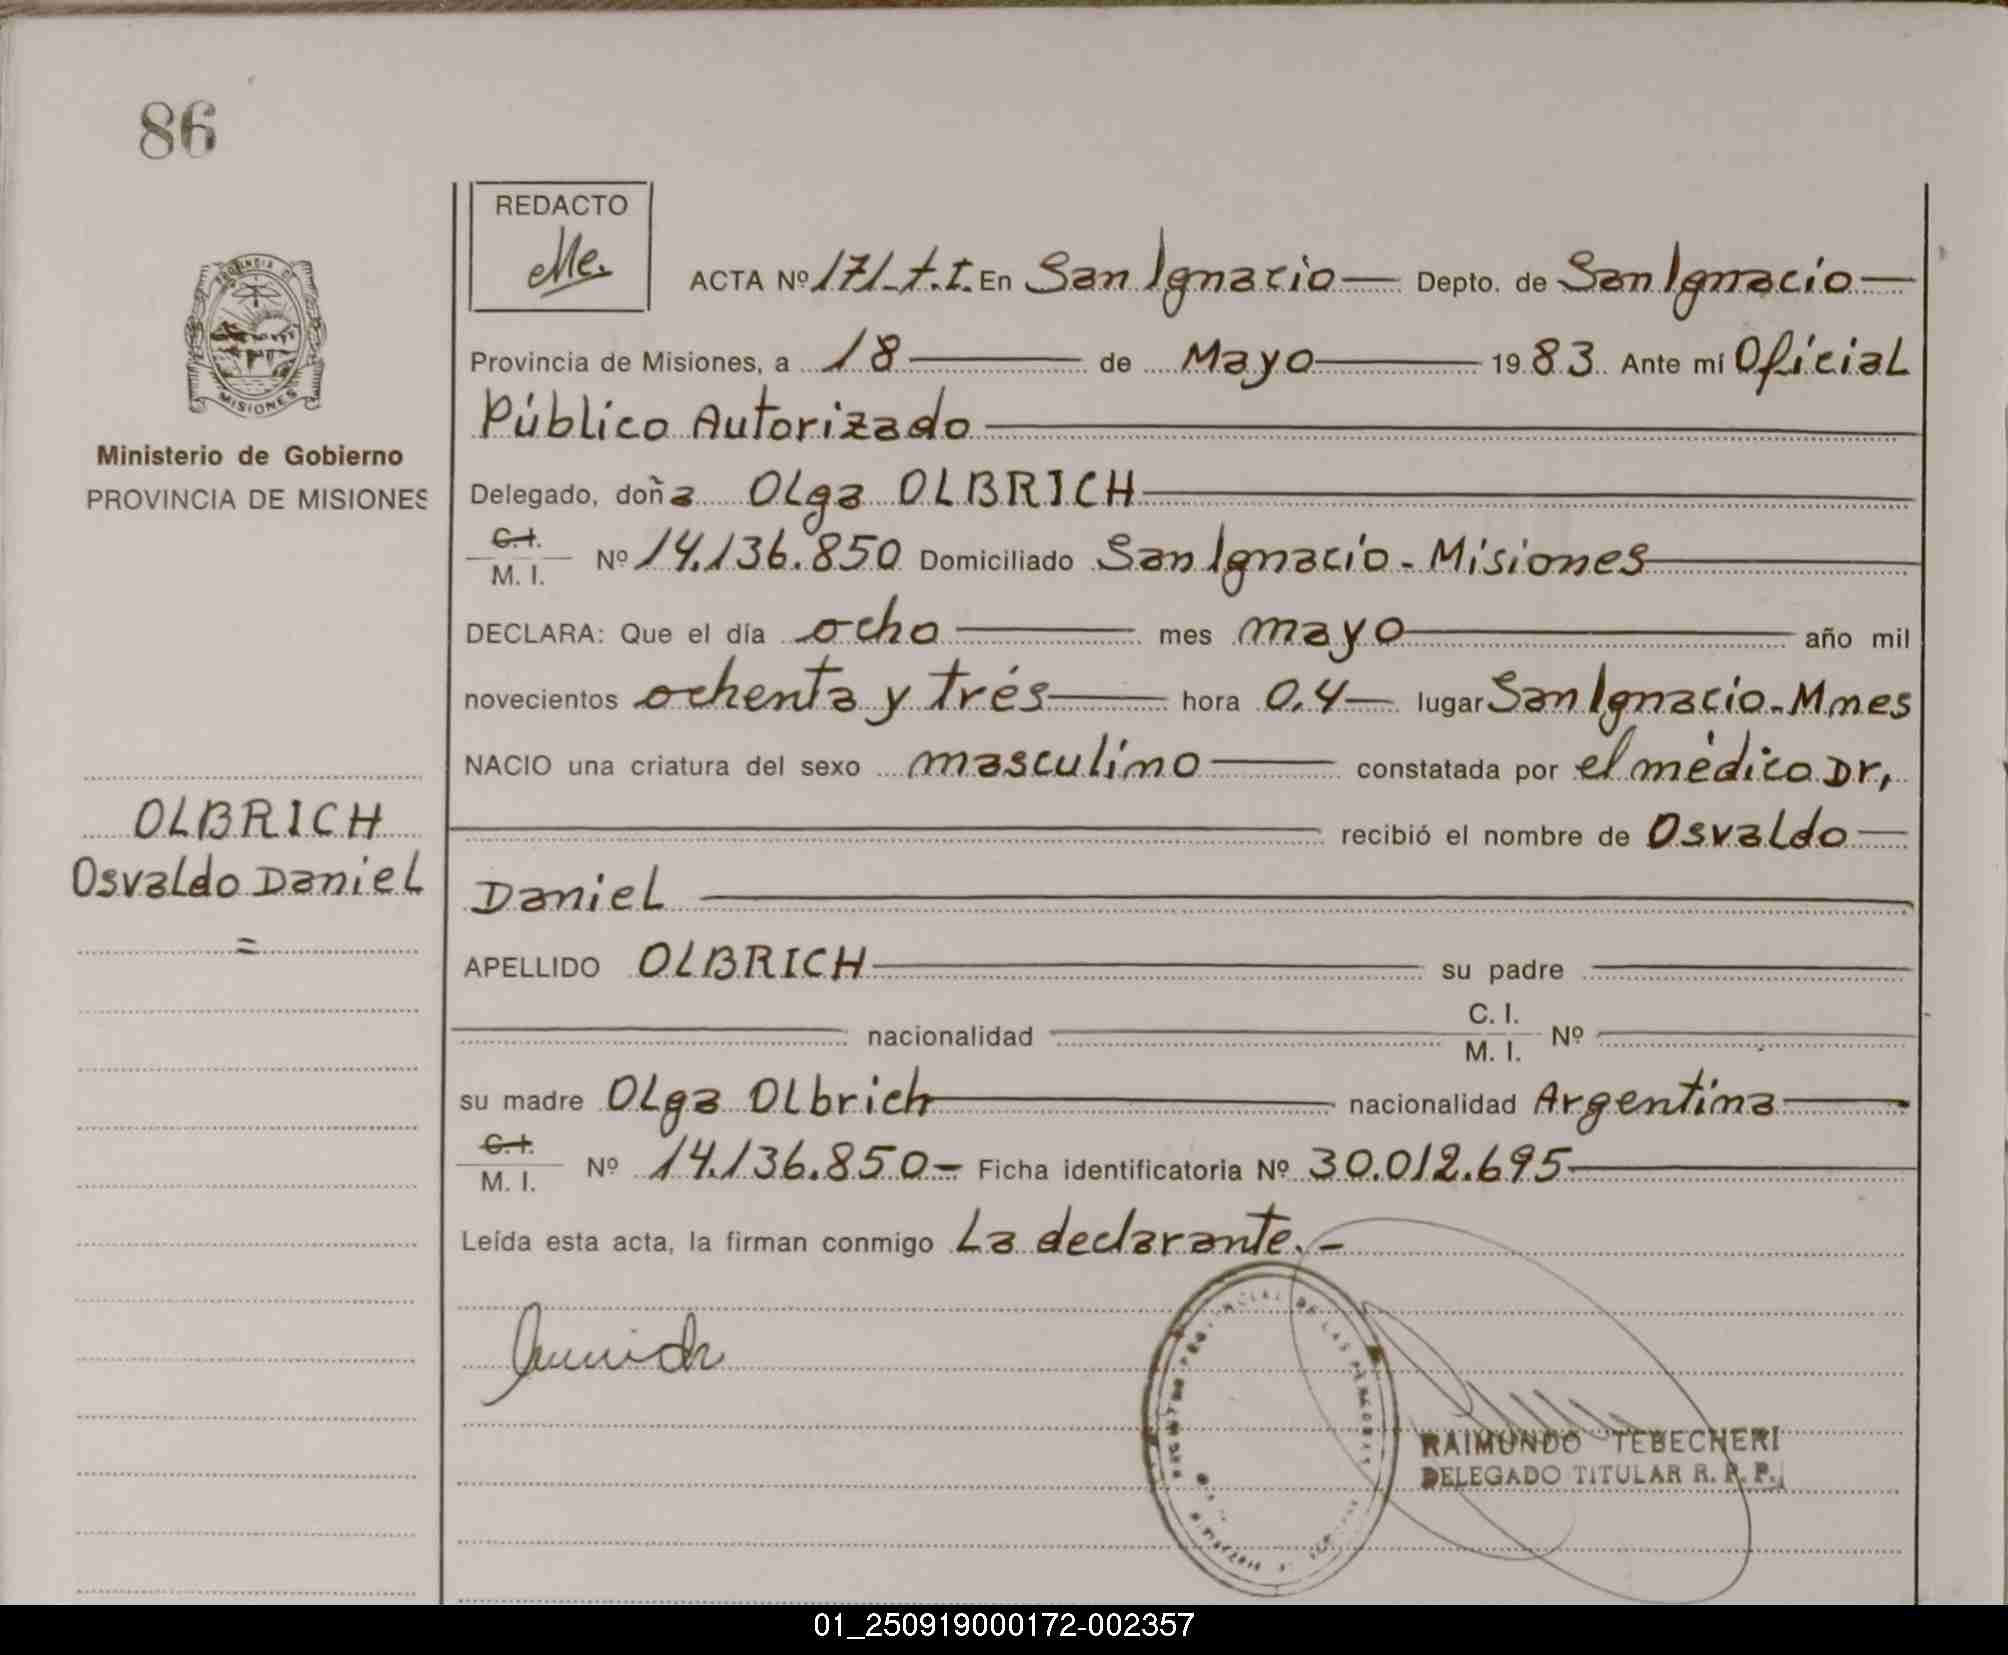 86
REDACTO
Me.
ACTA Nº 171-t.I. En San Ignacio Depto. de San Ignacio
Provincia de Misiones, a 18 de Mayo 1983. Ante mí Oficial
Público Autorizado
Delegado, doña Olga OLBRICH
C.I.
M. I. Nº 14.136.850 Domiciliado San Ignacio - Misiones
DECLARA: Que el día ocho mes mayo año mil
novecientos ochenta y trés hora 0.4 lugar San Ignacio. Mnes
NACIO una criatura del sexo masculino constatada por el médico Dr,
recibió el nombre de Osvaldo
Daniel
APELLIDO OLBRICH su padre
nacionalidad C. I.
M. I. Nº
su madre Olga Olbrich nacionalidad Argentina
C.I.
M. I. Nº 14.136.850 - Ficha identificatoria Nº 30.012.695
Leída esta acta, la firman conmigo La declarante. -
PROVINCIA DE
MISIONES
Ministerio de Gobierno
PROVINCIA DE MISIONES
OLBRICH
Osvaldo Daniel
=
REGISTRO PROVINCIAL DE LAS PERSONAS
RAIMUNDO TEBECHERI
DELEGADO TITULAR R. P. P.
01_250919000172-002357